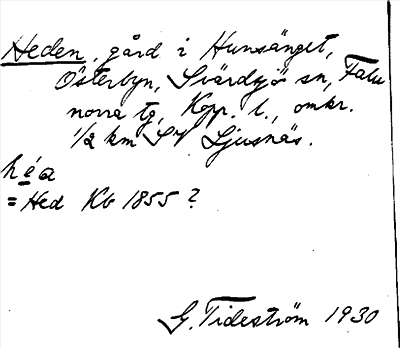 Heden, gård i Hunsänget,
Österbyn, Svärdsjö sn, Falu
norra tg, Kopp. l., omkr.
1/2 km SV Ljusnäs.
héa
= Hed Kb 1855?
G. Tideström 1930